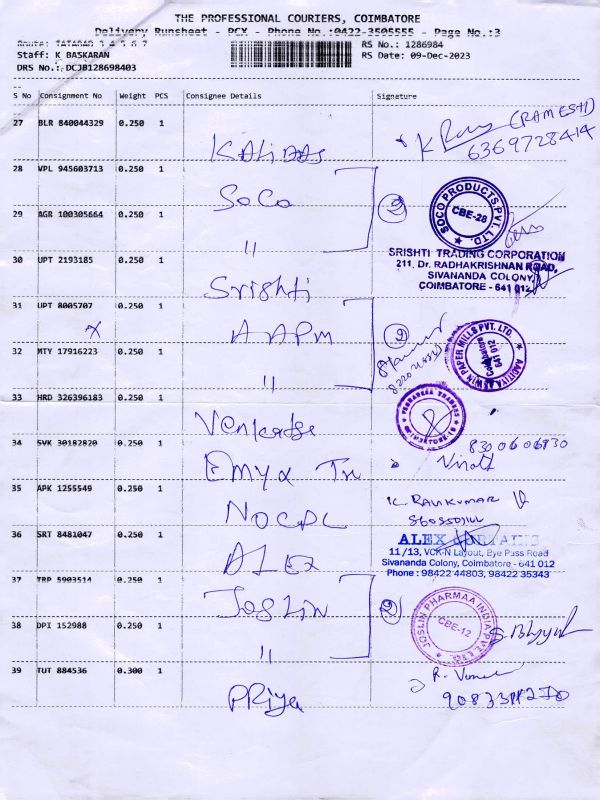 THE PROFESSIONAL COURIERS, COIMBATORE
Delivery Runsheet - PCX - Phone No.:0422-3505555 - Page No.:3
Route: TATABAD 3 4 5 6 7
Staff: K BASKARAN
DRS No.: DCJB128698403
RS No.: 1286984
RS Date: 09-Dec-2023
S No Consignment No Weight PCS Consignee Details Signature
27 BLR 840044329 0.250 1
KALIDAS
K (RAMESH)
6369728414
28 VPL 945603713 0.250 1
SoCo
2
SOCO PRODUCTS PVT. LTD.
CBE-28
29 AGR 100305664 0.250 1
"
SRISHTI TRADING CORPORATION
211, Dr. RADHAKRISHNAN ROAD,
SIVANANDA COLONY,
COIMBATORE - 641 012
30 UPT 2193185 0.250 1
Srishti
31 UPT 8005707 0.250 1
x
AAPM
2
PAPER MILLS PVT. LTD.
Coimbatore
641 012
32 MTY 17916223 0.250 1
"
33 HRD 326396183 0.250 1
Venkatse
34 SVK 30182820 0.250 1
Emyx Tn
8300606830
35 APK 1255549 0.250 1
NOCPL
K. RAVIKUMAR
36 SRT 8481047 0.250 1
ALEX
ALEX
11/13, VCK-N Layout, Bye Pass Road
Sivananda Colony, Coimbatore - 641 012
Phone : 98422 44803, 98422 35343
37 TRP 5903514 0.250 1
Joslin
2
JOSLIN PHARMAA INDIA PVT. LTD.
CBE-12
38 DPI 152988 0.250 1
"
39 TUT 884536 0.300 1
PRiya
R.